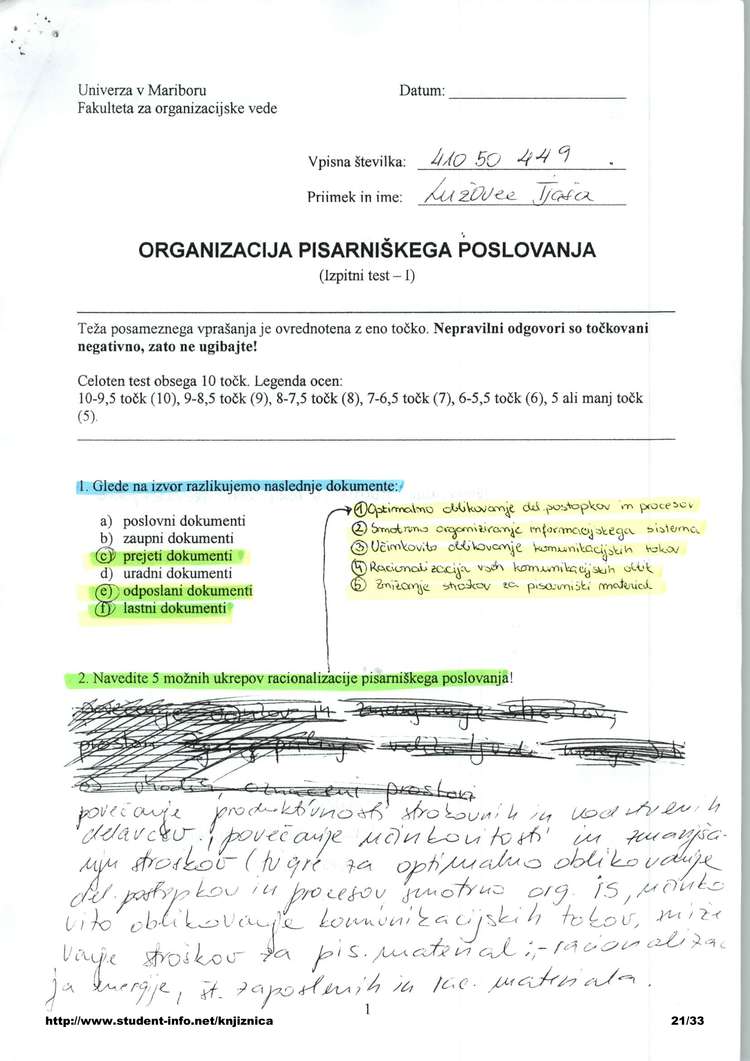 Univerza v Mariboru
Fakulteta za organizacijske vede
Datum:
Vpisna številka: 410 50 449
Priimek in ime: Lužovec Tjaša
ORGANIZACIJA PISARNIŠKEGA POSLOVANJA
(Izpitni test – I)
Teža posameznega vprašanja je ovrednotena z eno točko. Nepravilni odgovori so točkovani
negativno, zato ne ugibajte!
Celoten test obsega 10 točk. Legenda ocen:
10-9,5 točk (10), 9-8,5 točk (9), 8-7,5 točk (8), 7-6,5 točk (7), 6-5,5 točk (6), 5 ali manj točk
(5).
1. Glede na izvor razlikujemo naslednje dokumente:
a) poslovni dokumenti
b) zaupni dokumenti
c) prejeti dokumenti
d) uradni dokumenti
e) odposlani dokumenti
f) lastni dokumenti
1 Optimalno oblikovanje del. postopkov in procesov
2 Smotrno organiziranje informacijskega sistema
3 Učinkovito oblikovanje komunikacijskih tokov
4 Racionalizacija vseh komunikacijskih oblik
5 Znižanje stroškov za pisarniški material
2. Navedite 5 možnih ukrepov racionalizacije pisarniškega poslovanja!
povečanje produktivnosti strokovnih in vodstvenih
delavcev, povečanje učinkovitosti in zmanjša-
nju stroškov (tu gre za optimalno oblikovanje
del. postopkov in procesov smotrno org. IS, učinko
vito oblikovanje komunikacijskih tokov, zniže
vanje stroškov za pis. material; - racionalizac
ja energije, št. zaposlenih in materiala.
1
http://www.student-info.net/knjiznica
21/33